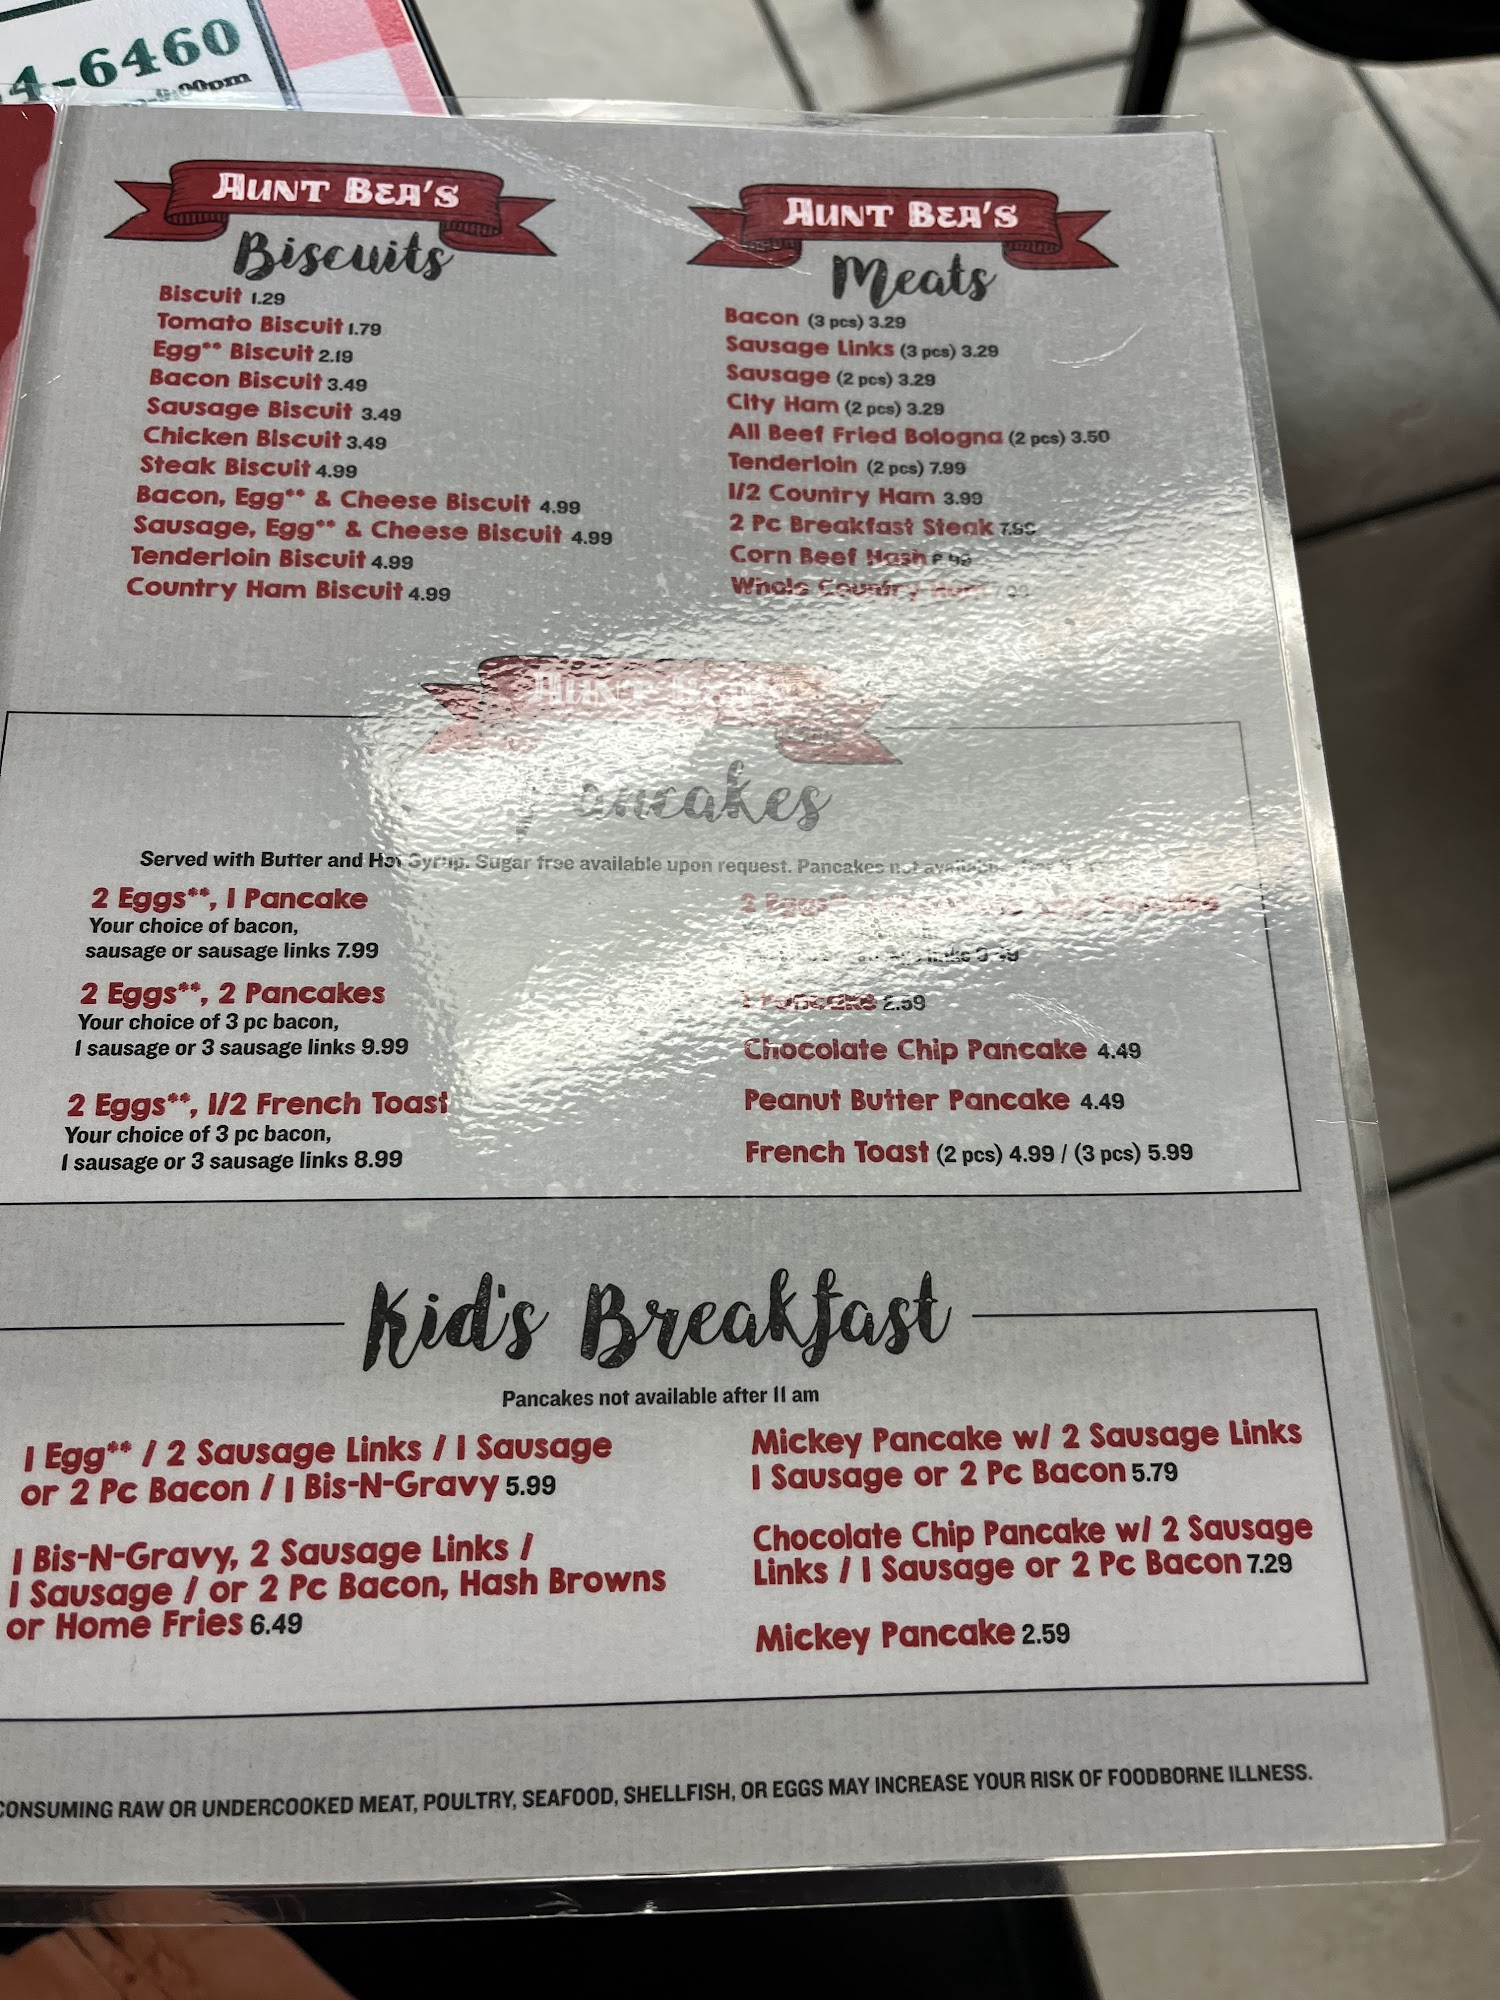 4-6460
-9:00pm
AUNT BEA'S
Biscuits
Biscuit 1.29
Tomato Biscuit 1.79
Egg** Biscuit 2.19
Bacon Biscuit 3.49
Sausage Biscuit 3.49
Chicken Biscuit 3.49
Steak Biscuit 4.99
Bacon, Egg** & Cheese Biscuit 4.99
Sausage, Egg** & Cheese Biscuit 4.99
Tenderloin Biscuit 4.99
Country Ham Biscuit 4.99
AUNT BEA'S
Meats
Bacon (3 pcs) 3.29
Sausage Links (3 pcs) 3.29
Sausage (2 pcs) 3.29
City Ham (2 pcs) 3.29
All Beef Fried Bologna (2 pcs) 3.50
Tenderloin (2 pcs) 7.99
1/2 Country Ham 3.99
2 Pc Breakfast Steak 7.99
Corn Beef Hash
Whole Country Ham 7.99
AUNT BEA'S
Pancakes
Served with Butter and Hot Syrup. Sugar free available upon request. Pancakes not available
2 Eggs**, 1 Pancake
Your choice of bacon,
sausage or sausage links 7.99
2 Eggs**, 2 Pancakes
Your choice of 3 pc bacon,
1 sausage or 3 sausage links 9.99
2 Eggs**, 1/2 French Toast
Your choice of 3 pc bacon,
1 sausage or 3 sausage links 8.99
2 Eggs**
links
1 Pancake 2.59
Chocolate Chip Pancake 4.49
Peanut Butter Pancake 4.49
French Toast (2 pcs) 4.99 / (3 pcs) 5.99
Kid's Breakfast
Pancakes not available after 11 am
1 Egg** / 2 Sausage Links / 1 Sausage
or 2 Pc Bacon / 1 Bis-N-Gravy 5.99
1 Bis-N-Gravy, 2 Sausage Links /
1 Sausage / or 2 Pc Bacon, Hash Browns
or Home Fries 6.49
Mickey Pancake w/ 2 Sausage Links
1 Sausage or 2 Pc Bacon 5.79
Chocolate Chip Pancake w/ 2 Sausage
Links / 1 Sausage or 2 Pc Bacon 7.29
Mickey Pancake 2.59
CONSUMING RAW OR UNDERCOOKED MEAT, POULTRY, SEAFOOD, SHELLFISH, OR EGGS MAY INCREASE YOUR RISK OF FOODBORNE ILLNESS.